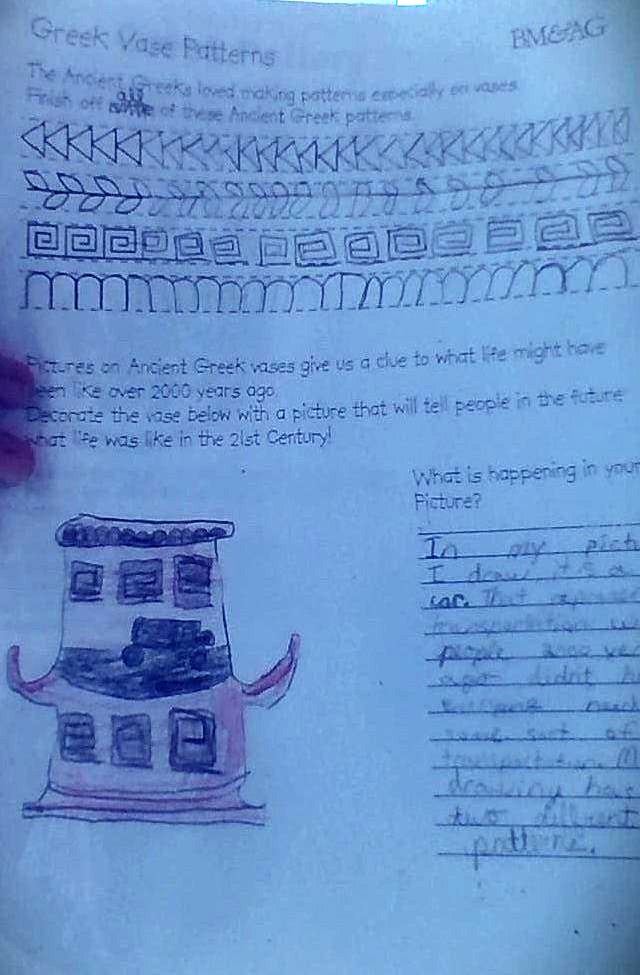 Greek Vase Patterns
BM&AG
The Ancient Greeks loved making patterns especially on vases.
Finish off all of these Ancient Greek patterns.
Pictures on Ancient Greek vases give us a clue to what life might have
been like over 2000 years ago.
Decorate the vase below with a picture that will tell people in the future
what life was like in the 21st Century!
What is happening in your
Picture?
In my pict
I draw, it's a
car. That
people 2000 yea
ago didn't h
need
some sort of
drawing have
two different
patterns.